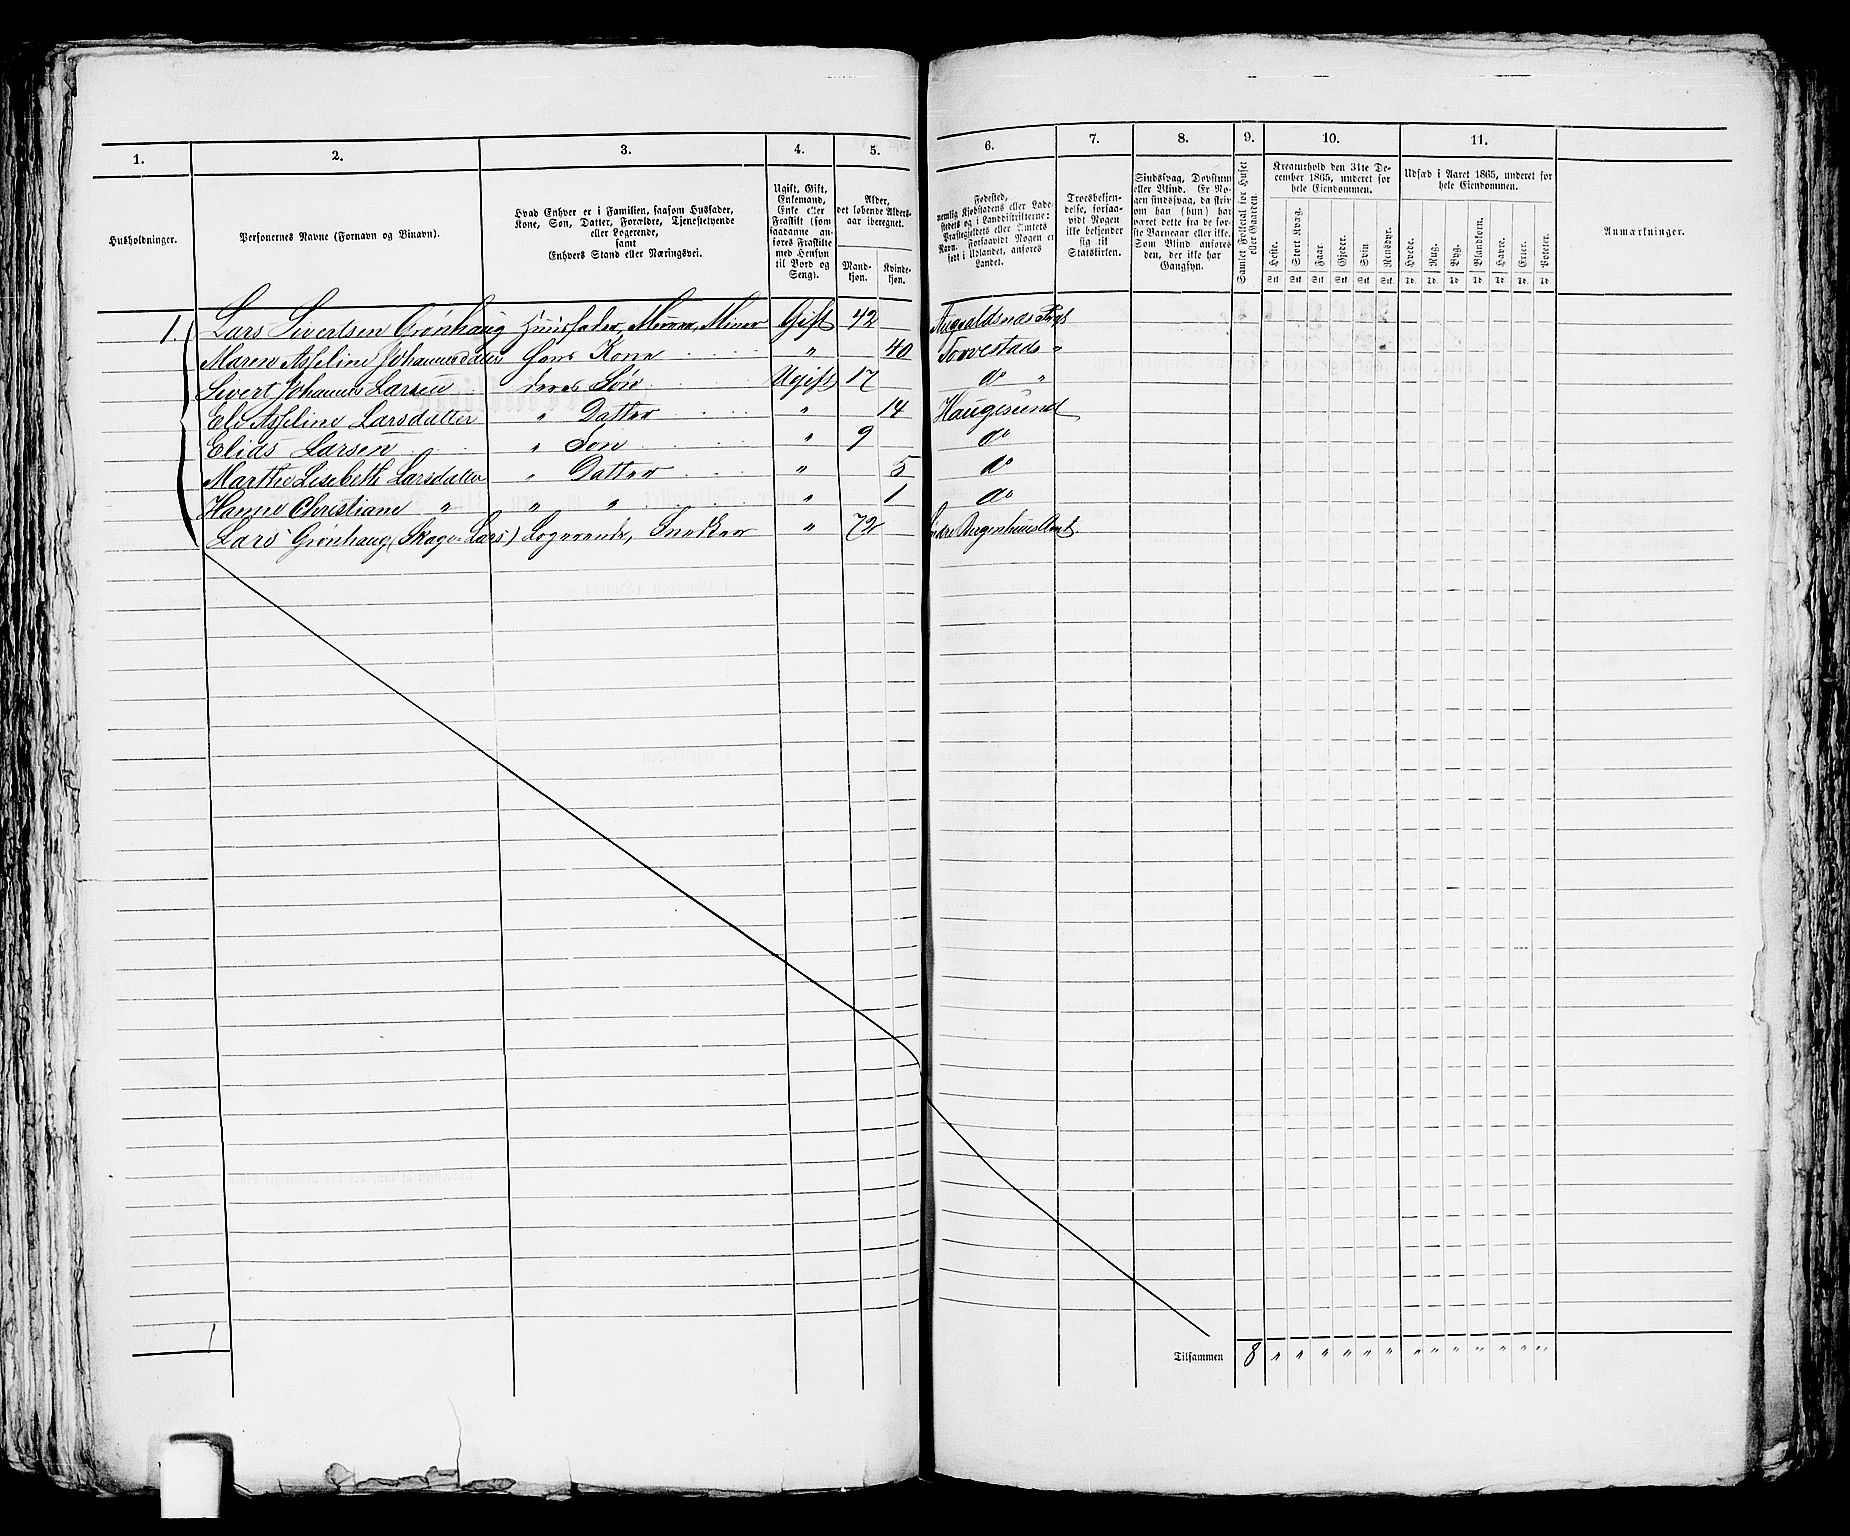 1. 2. 3. 4. 5. 6. 7. 8. 9. 10. 11.
Husholdninger.
Personernes Navne (Fornavn og Binavn).
Hvad Enhver er i Familien, saasom Husfader,
Kone, Søn, Datter, Forældre, Tjenestetyende
eller Logerende,
samt
Enhvers Stand eller Næringsvei.
Ugift, Gift,
Enkemand,
Enke eller
Fraskilt (som
saadanne an-
føres Fraskilte
med Hensyn
til Bord og
Seng).
Alder,
det løbende Alders-
aar iberegnet.
Mand-
kjøn.
Kvinde-
kjøn.
Fødested,
nemlig Kjøbstadens eller Lade-
stedets og i Landdistrikterne:
Præstegjeldets eller Amtets
Navn. Forsaavidt Nogen er
født i Udlandet, anføres
Landet.
Troesbekjen-
delse, forsaa-
vidt Nogen
ikke bekjender
sig til
Statskirken.
Sindssvag, Døvstum
eller Blind. Er No-
gen sindssvag, da skriv
om han (hun) har
været dette fra de før-
ste Barneaar eller ikke.
Som Blind anføres
den, der ikke har
Gangsyn.
Samlet Folketal for Huset
eller Gaarden.
Kreaturhold den 31te De-
cember 1865, underet for
hele Eiendommen.
Heste. Stort Kvæg. Faar. Gjeder. Svin Rensdyr.
Stk. Stk. Stk. Stk. Stk. Stk.
Udsæd i Aaret 1865, underet for
hele Eiendommen.
Hvede. Rug. Byg. Blandkorn. Havre. Erter. Poteter.
Td. Td. Td. Td. Td. Td. Td.
Anmærkninger.
1. Lars Sivertsen Grönhaug Huusfader, Murer, Gift 42 Augvaldsnæs Prgl
Maren Asseline Johannesdatter Hans Kone " 40 Torvestads "
Sivert Johannes Larsen deres Søn Ugift 17 do "
Asseline Larsdatter " Datter " 14 Haugesund
Elias Larsen " Søn " 9 do
Marthe Lisebeth Larsdatter " Datter " 5 do
Hanne Christiane " " " " 1 do
Lars Grönhaug (Skage-Lars) Logerende, Snedker " 72 Søndre Bergenhuus Amt.
1 Tilsammen 8 " " " " " " " " " " " " "